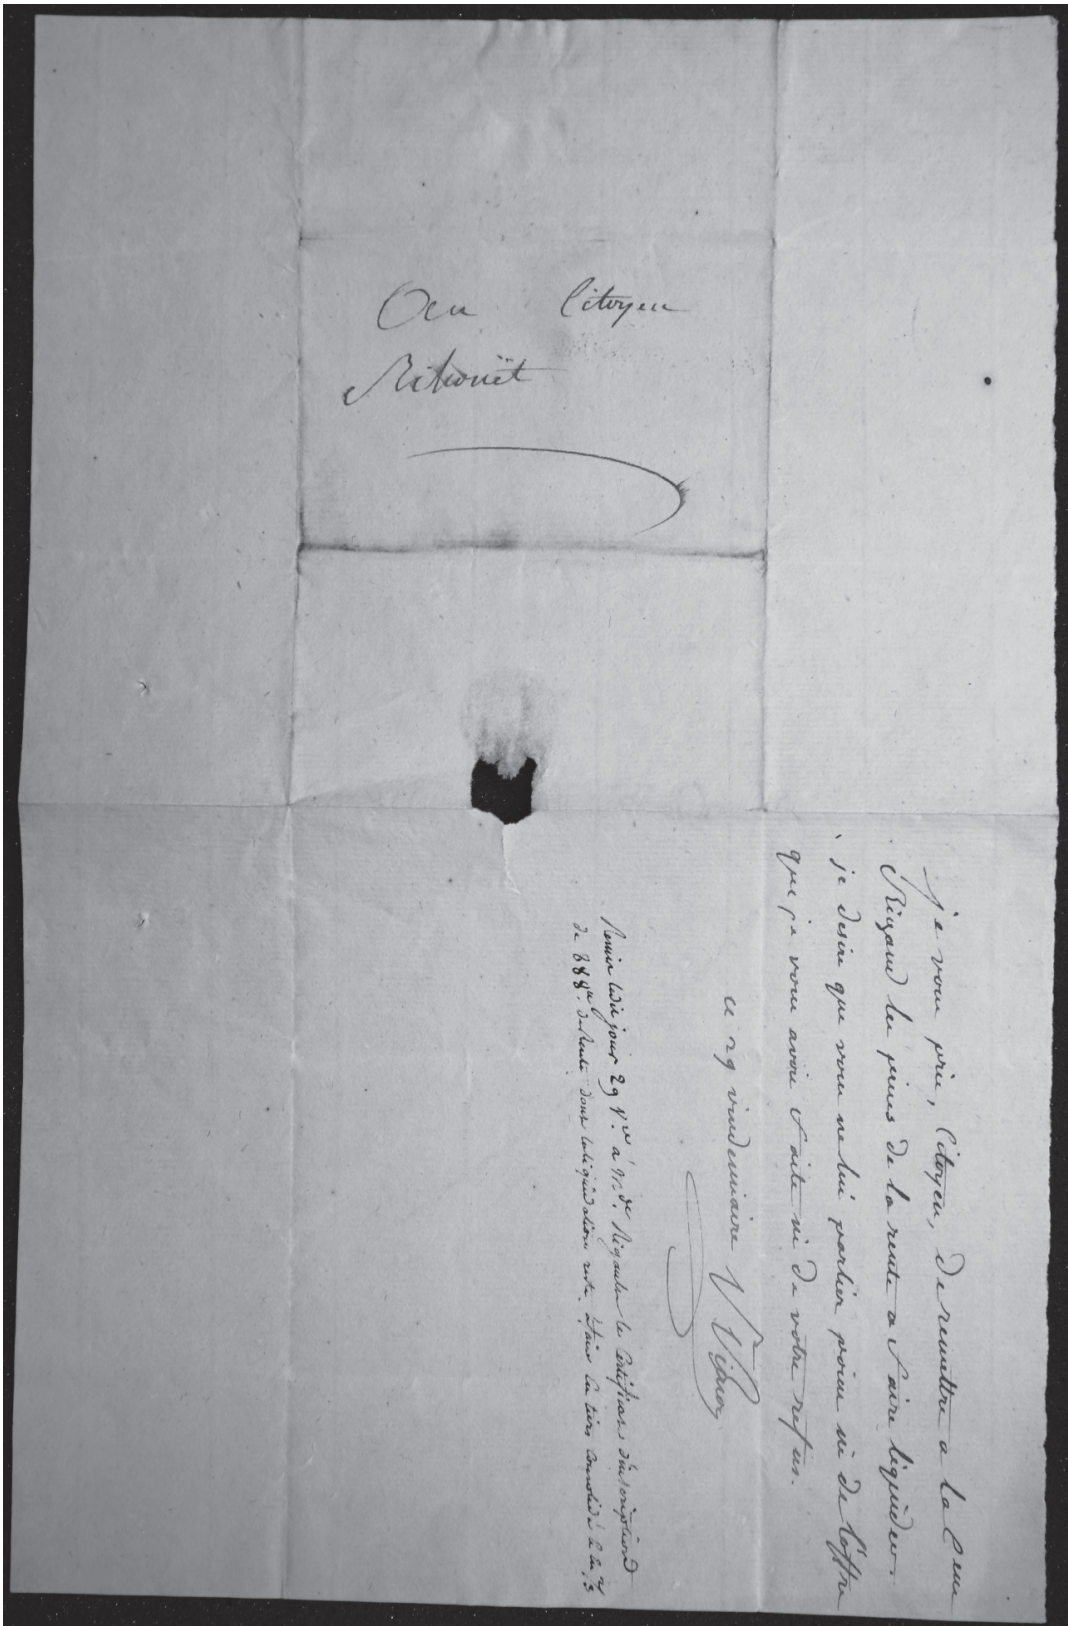 Au Citoyen
Rihouët
je vous prie, Citoyen, de remettre a la Cenne
Rigaud les pieces de la rente a faire liquider.
je desire que vous ne lui parliez point ni de l'offre
que je vous avois faite ni de votre refus.
ce 29 vindemiaire
Remis ledit jour 29 Vre à Mde Rigaud le Certificat d'inscription
de 888 de Rente dont la liquidation reste à faire en tiers consolidé &